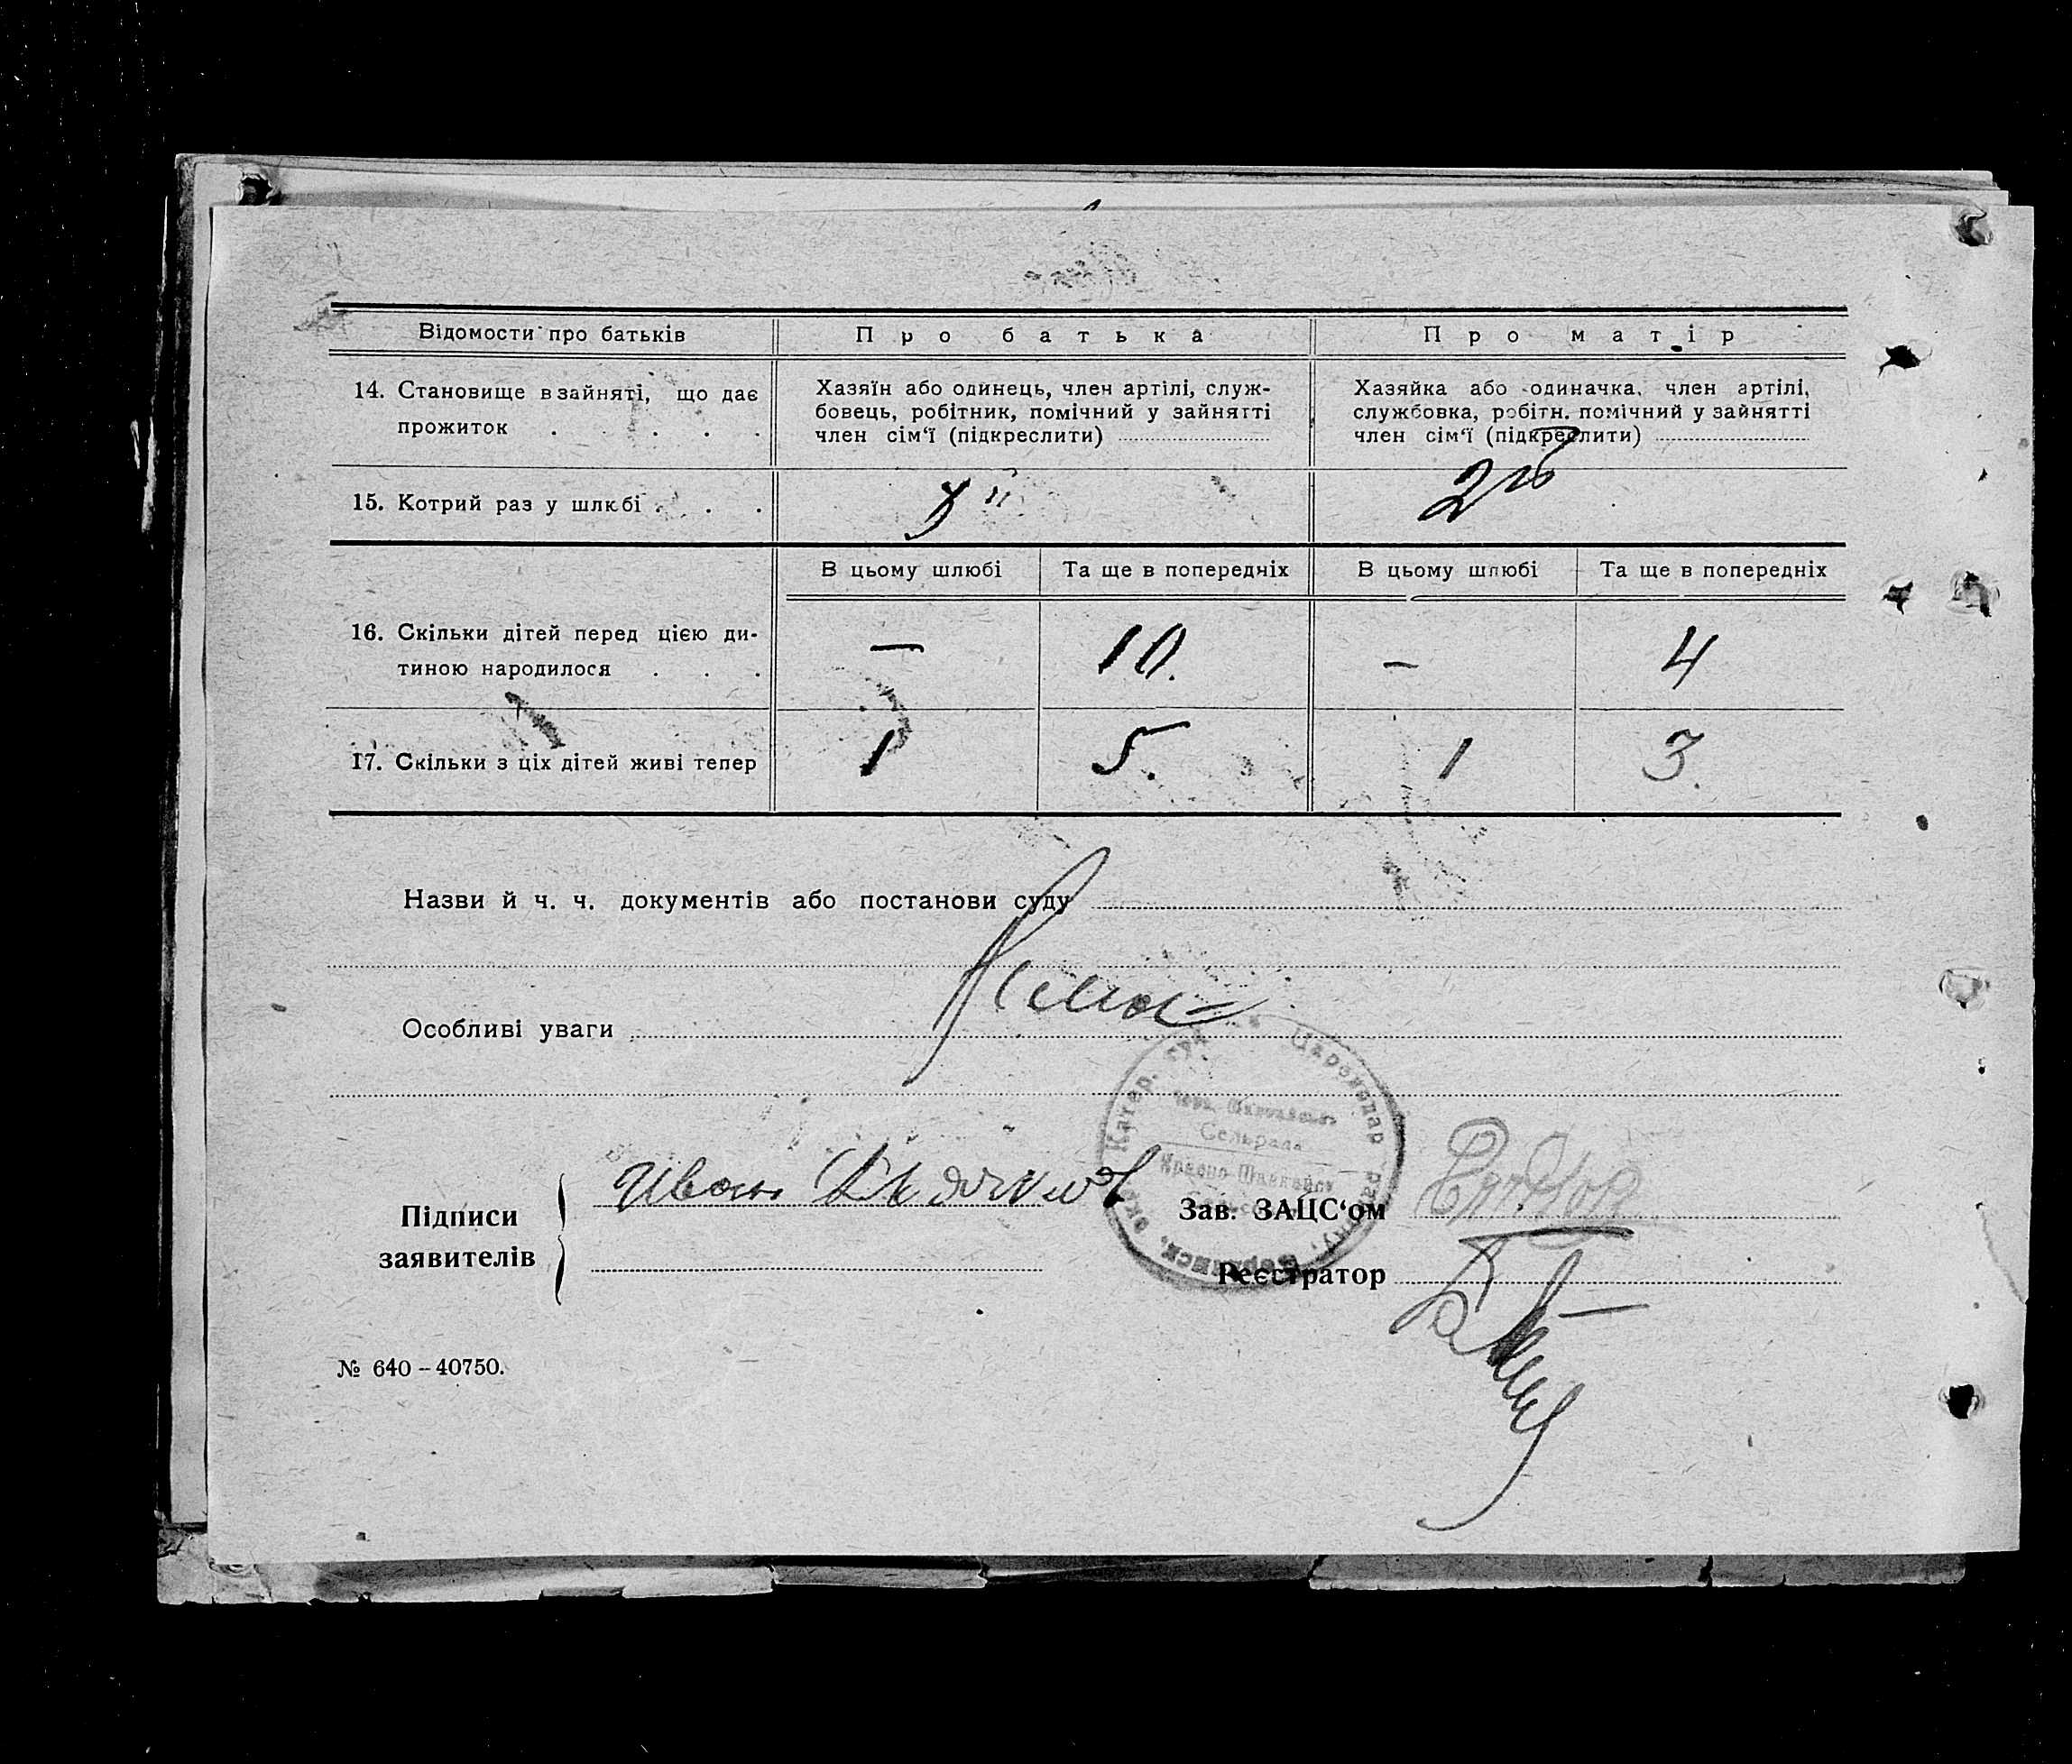 Відомости про батьків
Про батька
Про матір
14. Становище в зайняті, що дає
прожиток . . . . .
Хазяїн або одинець, член артілі, служ-
бовець, робітник, помічний у зайнятті
член сім‘ї (підкреслити)
Хазяйка або одиначка, член артілі,
службовка, робітн. помічний у зайнятті
член сім‘ї (підкреслити)
15. Котрий раз у шлюбі . . .
В цьому шлюбі
Та ще в попередніх
В цьому шлюбі
Та ще в попередніх
16. Скільки дітей перед цією ди-
тиною народилося . . .
—
10.
—
4
17. Скільки з ціх дітей живі тепер
1
5.
1
3.
Назви й ч. ч. документів або постанови суду
Особливі уваги
Підписи
заявителів
Иван
Катер.
Сельрада
Красно
Зав. ЗАЦС‘ом
Реєстратор
№ 640 – 40750.